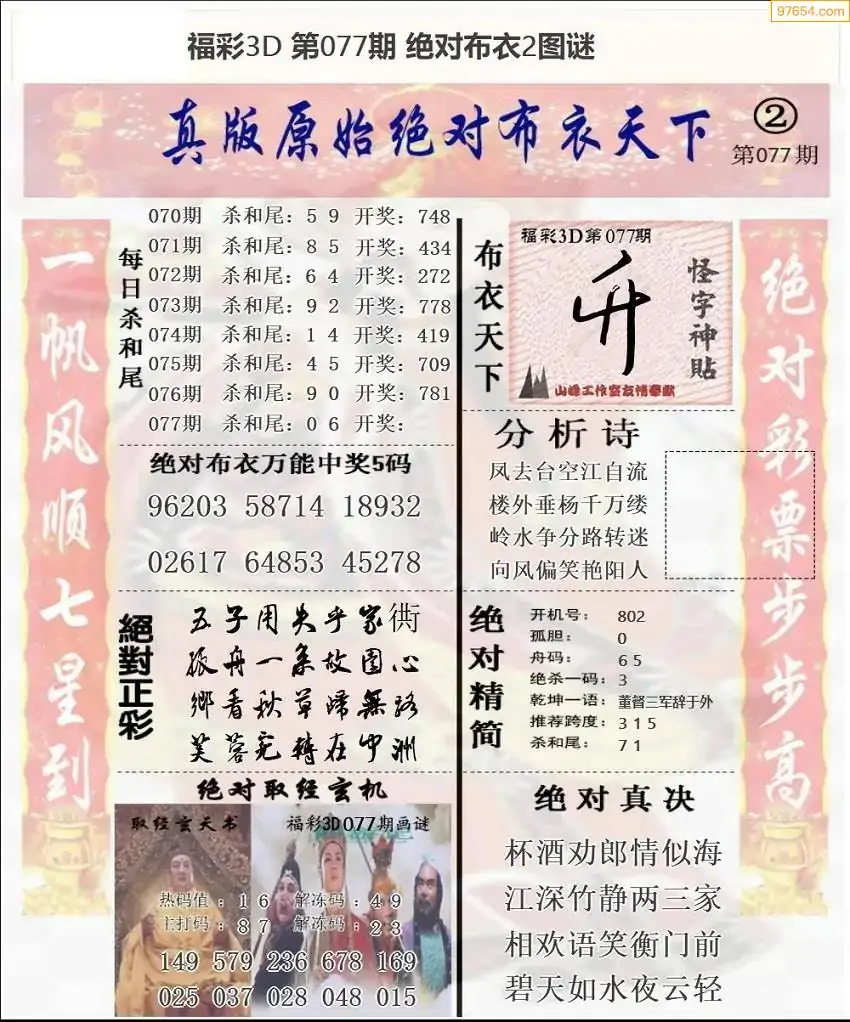 97654.com
福彩3D 第077期 绝对布衣2图谜
真版原始绝对布衣天下
②
第077期
一帆风顺七星到
每日杀和尾
070期 杀和尾：5 9 开奖：748
071期 杀和尾：8 5 开奖：434
072期 杀和尾：6 4 开奖：272
073期 杀和尾：9 2 开奖：778
074期 杀和尾：1 4 开奖：419
075期 杀和尾：4 5 开奖：709
076期 杀和尾：9 0 开奖：781
077期 杀和尾：0 6 开奖：
绝对布衣万能中奖5码
96203 58714 18932
02617 64853 45278
絕對正彩
五子用失乎家衖
孤舟一系故園心
鄉看秋草歸無路
芙蓉宛轉在中洲
绝对取经玄机
取经玄天书
福彩3D077期画谜
热码值：1 6 解冻码：4 9
主打码：8 7 解冻码：2 3
149 579 236 678 169
025 037 028 048 015
布衣天下
福彩3D第077期
怪字神貼
山峰工作室友情奉献
分析诗
凤去台空江自流
楼外垂杨千万缕
岭水争分路转迷
向风偏笑艳阳人
绝对精简
开机号：802
孤胆：0
舟码：6 5
绝杀一码：3
乾坤一语：董督三军辞于外
推荐跨度：3 1 5
杀和尾：7 1
绝对真决
杯酒劝郎情似海
江深竹静两三家
相欢语笑衡门前
碧天如水夜云轻
绝对彩票步步高